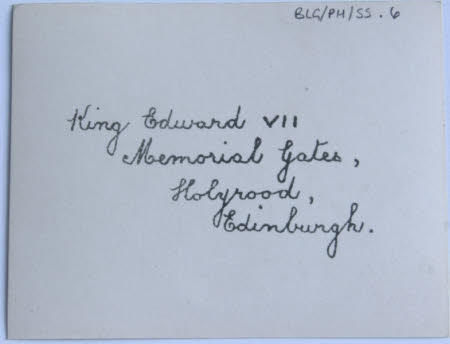 BLG/PH/SS.6
King Edward VII
Memorial Gates,
Holyrood,
Edinburgh.